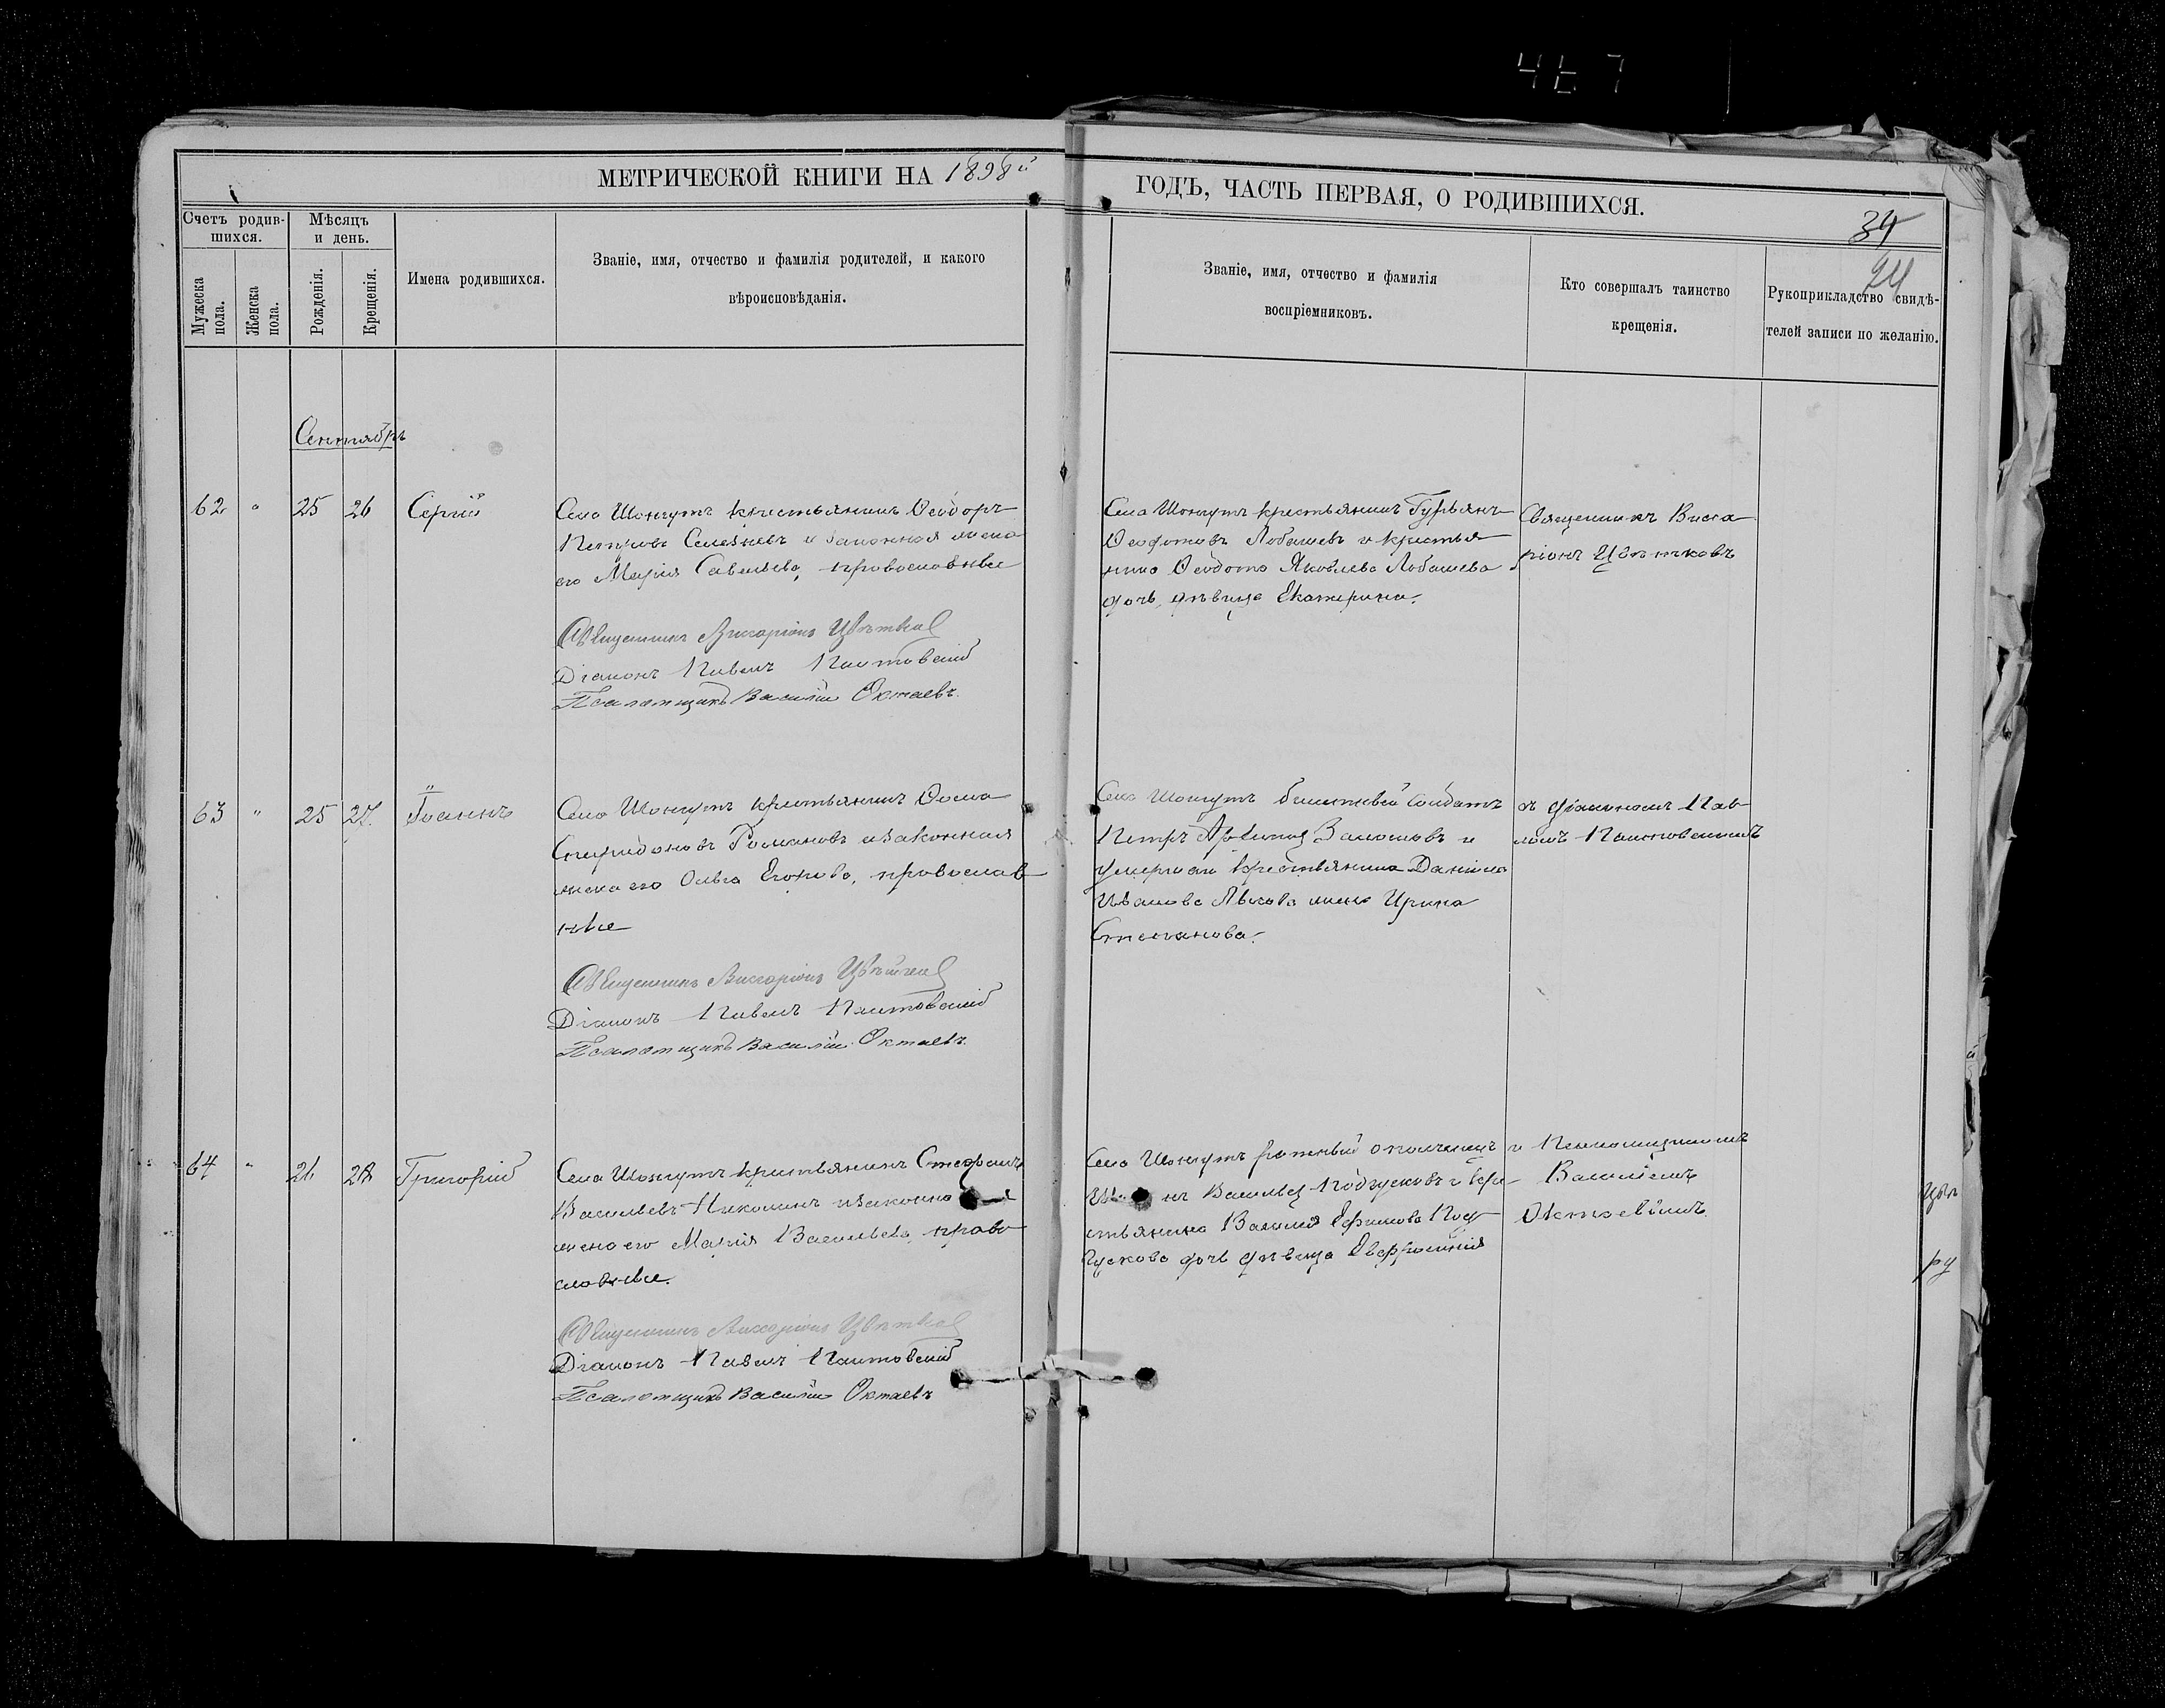 МЕТРИЧЕСКОЙ КНИГИ НА 1898й
ГОДЪ, ЧАСТЬ ПЕРВАЯ, О РОДИВШИХСЯ.
34
24
Счетъ родив-
шихся.
Мужеска
пола.
Женска
пола.
Мѣсяцъ
и день.
Рожденія.
Крещенія.
Имена родившихся.
Званіе, имя, отчество и фамилія родителей, и какого
вѣроисповѣданія.
Званіе, имя, отчество и фамилія
воспріемниковъ.
Кто совершалъ таинство
крещенія.
Рукоприкладство свидѣ-
телей записи по желанію.
Сентябрь
62 " 25 26 Сергій
Села Шонгутъ крестьянинъ Ѳеодоръ
Петровъ Селезневъ и законная жена
его Марія Савельева, православные
Священникъ Виссаріонъ Цвѣтков
Діаконъ Павелъ
Псаломщикъ Василій Октаевъ.
Села Шонгутъ крестьянинъ Гурьянъ
Ѳеофановъ Лобашевъ и крестья
нина Ѳедота Яковлева Лобашева
дочь, дѣвица Екатерина.
Священникъ Висса
ріонъ Цвѣтковъ
63 " 25 27. Іоаннъ
Села Шонгутъ крестьянинъ Ѳома
Спиридоновъ Романовъ и законная
жена его Ольга Егорова, православ
ные
Священникъ Виссаріонъ Цвѣтков
Діаконъ Павелъ
Псаломщикъ Василій Октаевъ.
Села Шонгутъ билетный солдатъ
Петръ Архипов и
умершаго крестьянина Данила
Иванова жена Ирина
Степанова.
съ діакономъ Пав
ломъ
64 " 26 28 Григорій
Села Шонгутъ крестьянинъ Стефанъ
Васильевъ Никонинъ и законная
жена его Марія Васильева, право
славные.
Священникъ Виссаріонъ Цвѣтков
Діаконъ Павелъ
Псаломщикъ Василій Октаевъ
Села Шонгутъ ратный ополченецъ
нъ Васильев Подгусковъ и кре
стьянина Василія Ефимова Под
гускова дочь дѣвица Евфросинія
и Псаломщикомъ
Василіемъ
Октаевымъ
цвѣ
ру